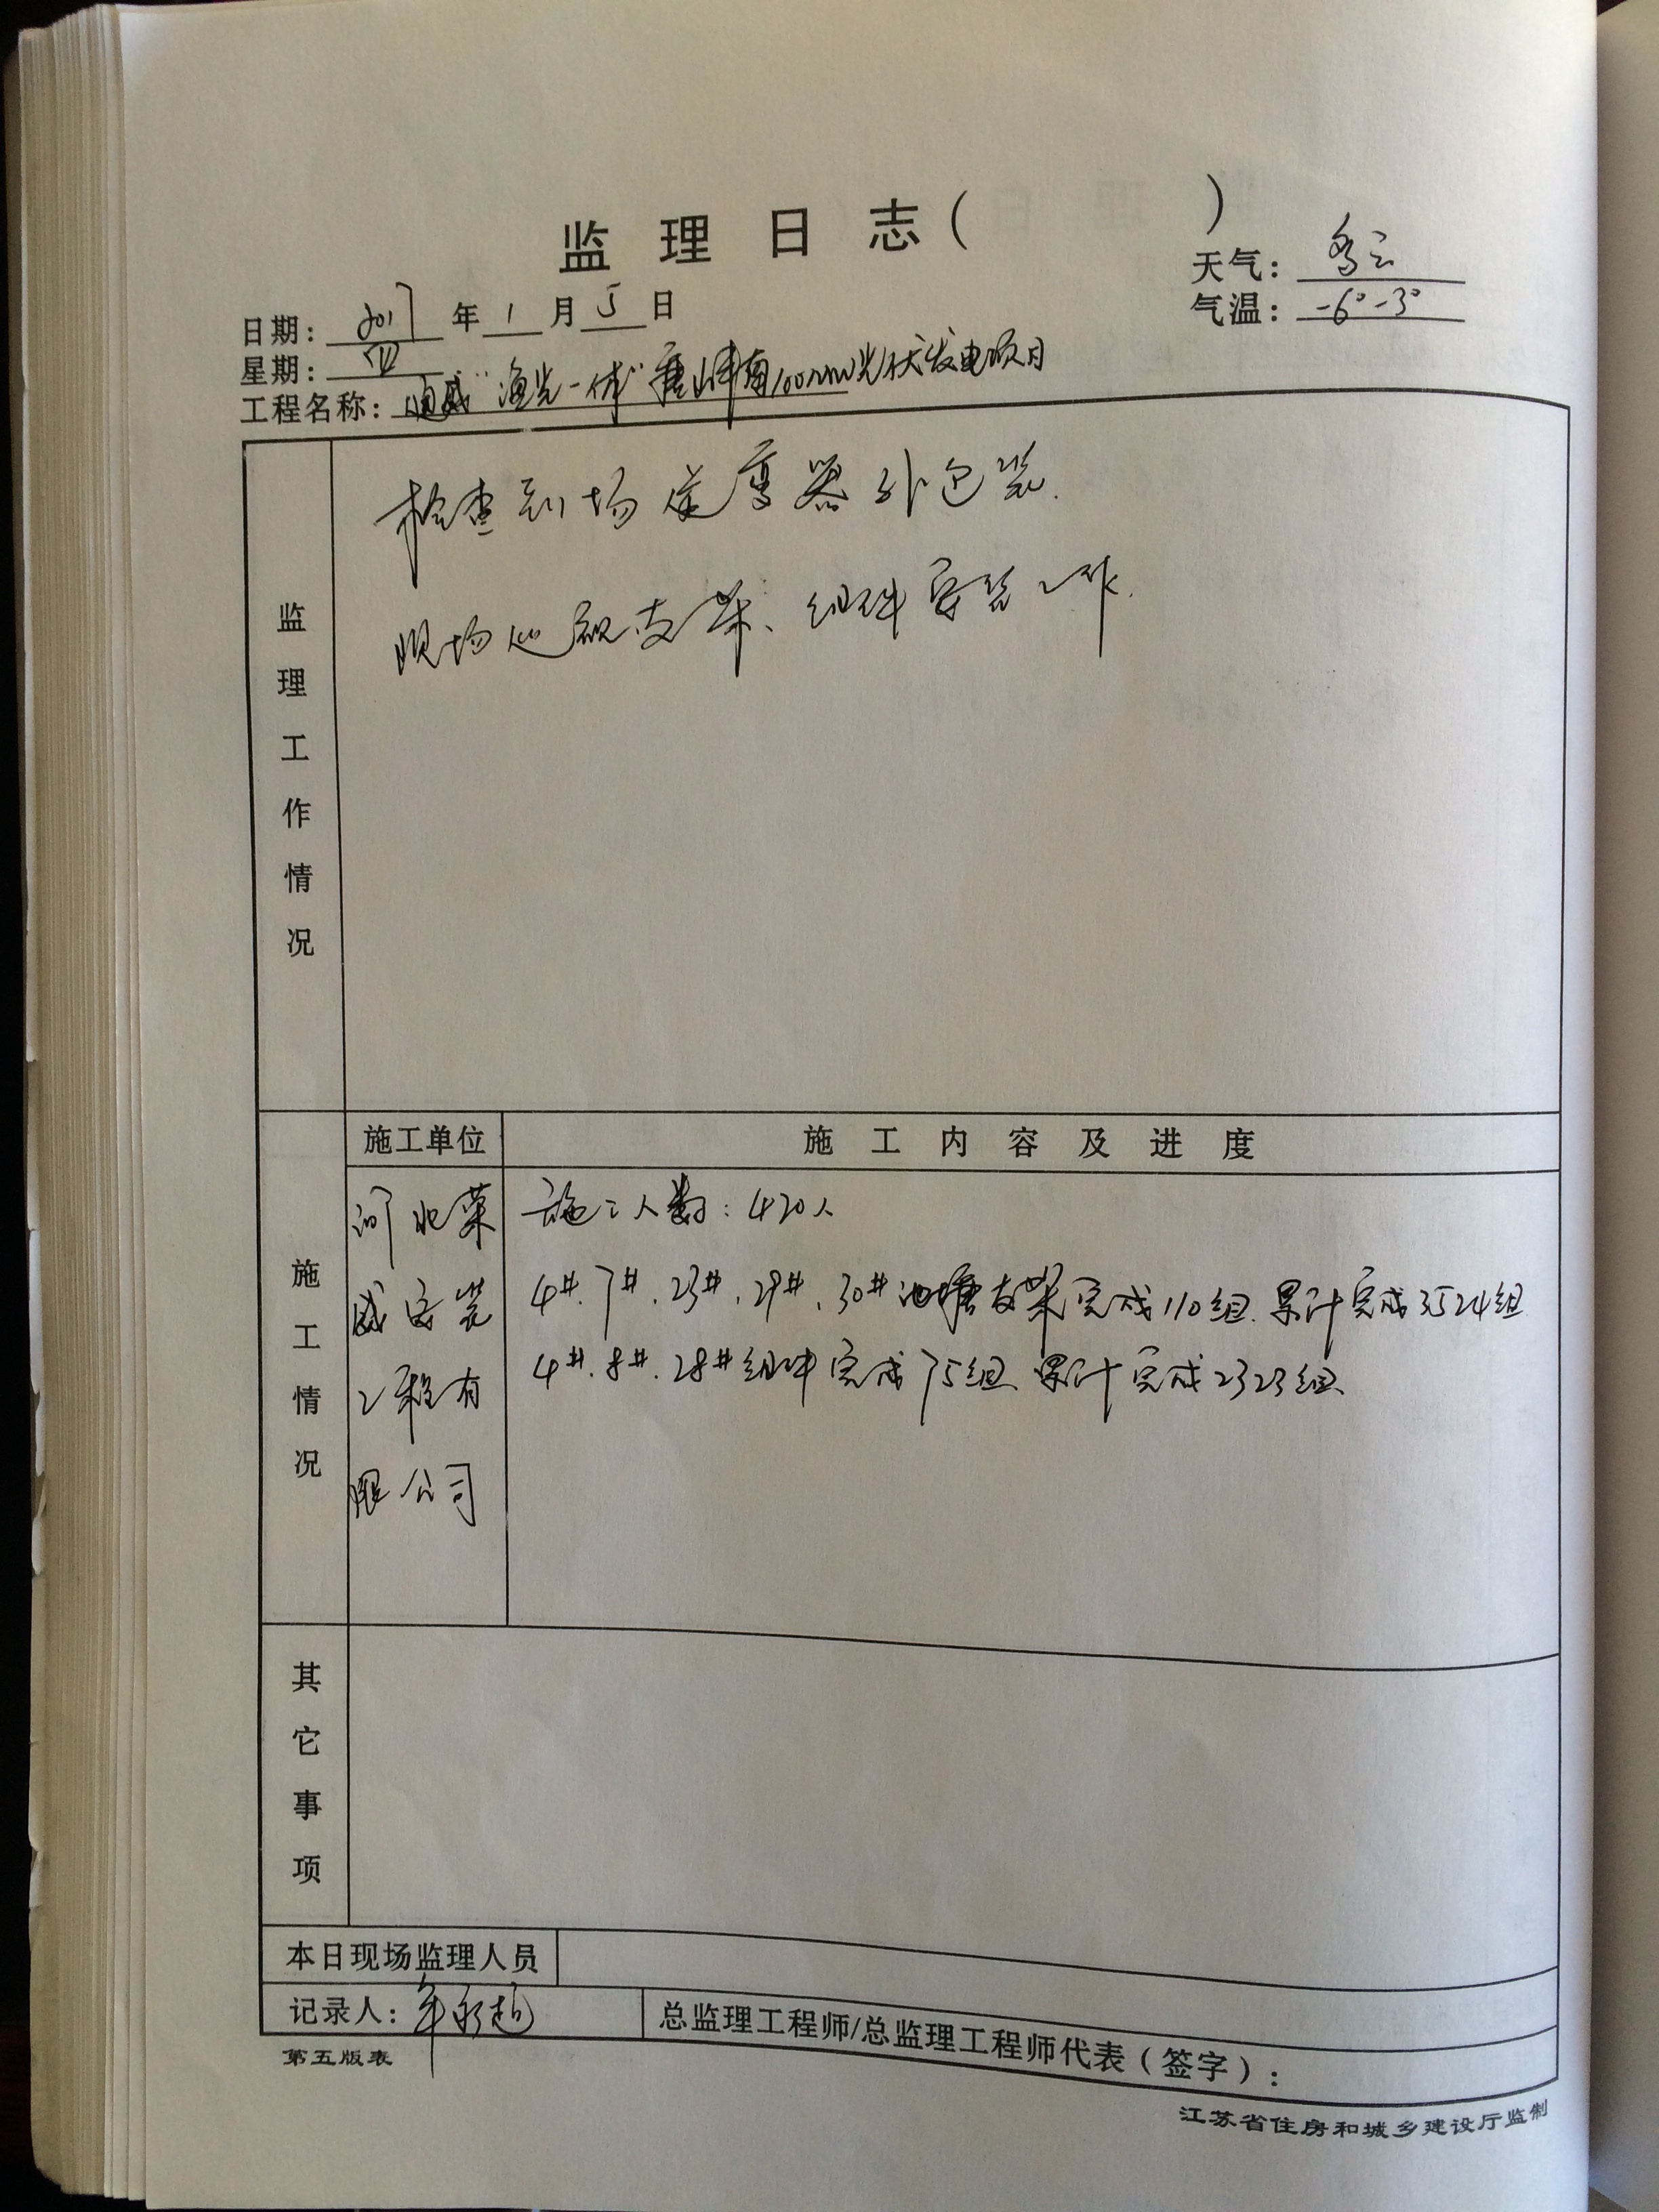 监理日志（ ）
天气：多云
日期：2017年1月5日
气温：-6°-3°
星期：四
工程名称：通威"渔光一体"唐山丰南100MW光伏发电项目
监理工作情况
检查到场逆变器外包装.
现场巡视支架、组件安装工作.
施工单位
施工内容及进度
施工情况
河北荣
威安装
工程有
限公司
施工人数：420人
4#、7#、23#、29#、30#池塘支架完成110组.累计完成3524组
4#、8#、28#组件完成75组、累计完成2323组、
其它事项
本日现场监理人员
记录人：
总监理工程师/总监理工程师代表（签字）：
第五版表
江苏省住房和城乡建设厅监制